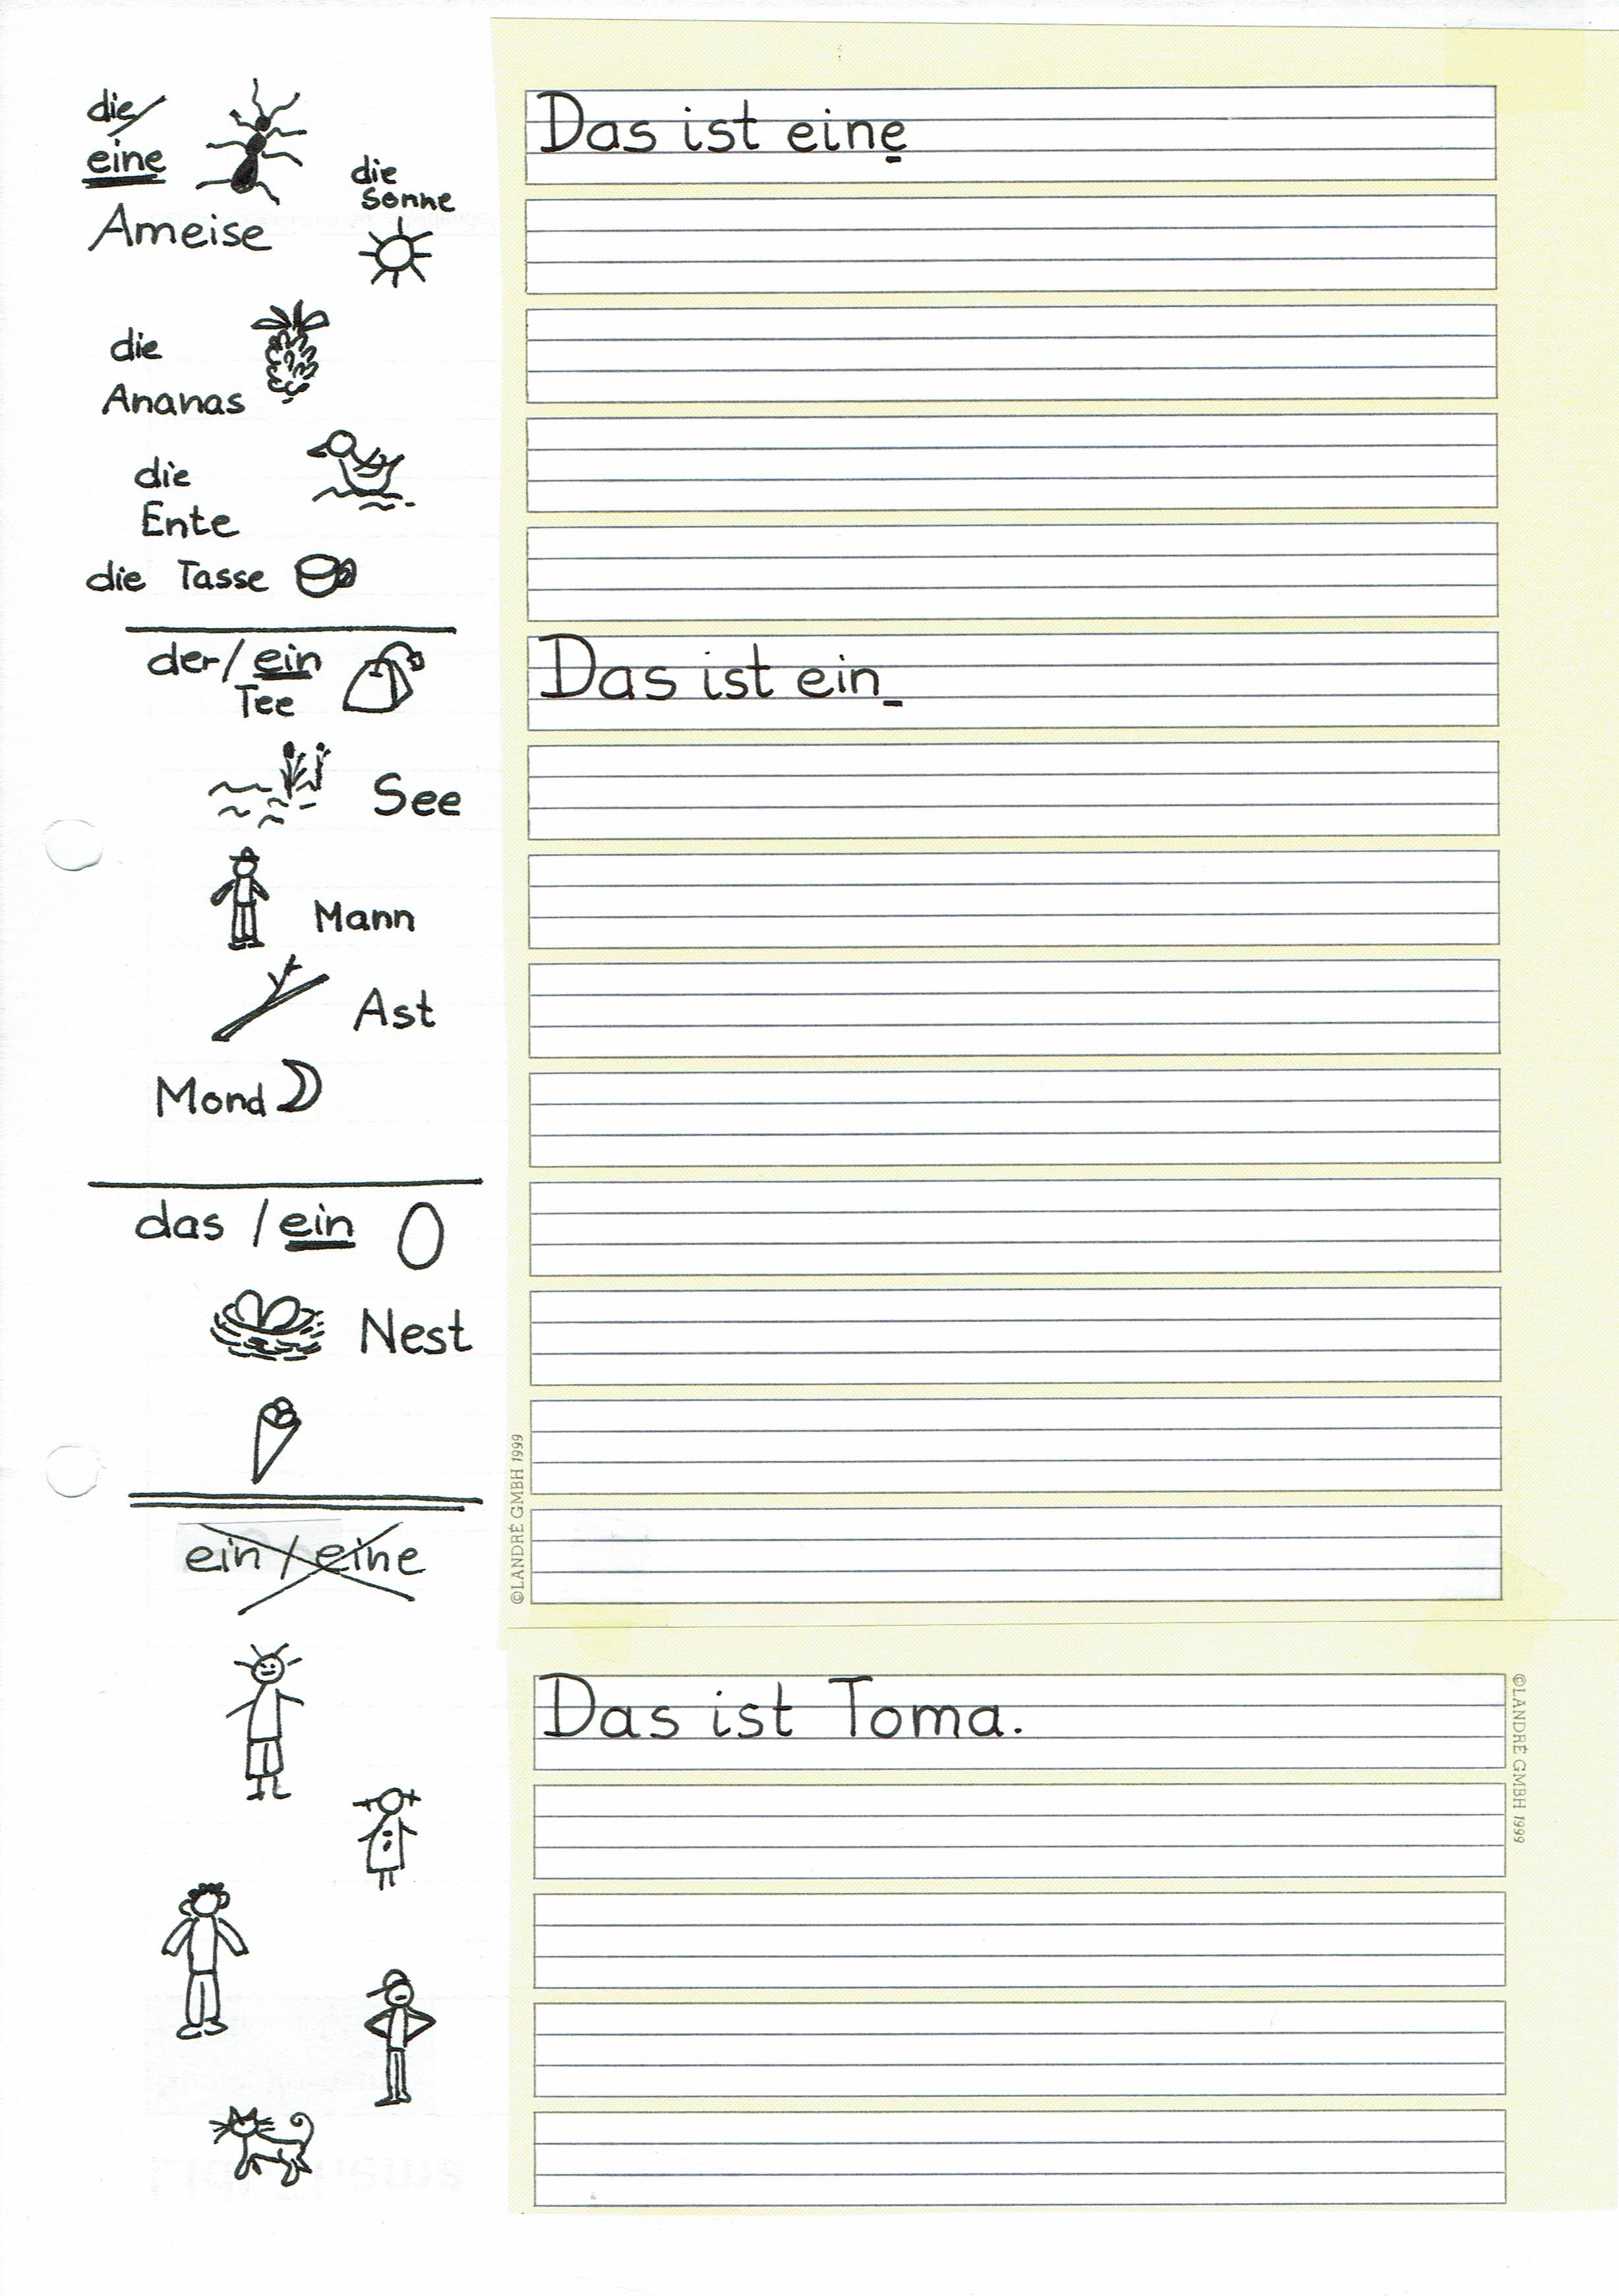 die/
eine
Ameise
die
Sonne
die
Ananas
die
Ente
die Tasse
der/ ein
Tee
See
Mann
Ast
Mond
das / ein
Nest
ein / eine
Das ist eine
Das ist ein
©LANDRÉ GMBH 1999
Das ist Toma.
©LANDRÉ GMBH 1999